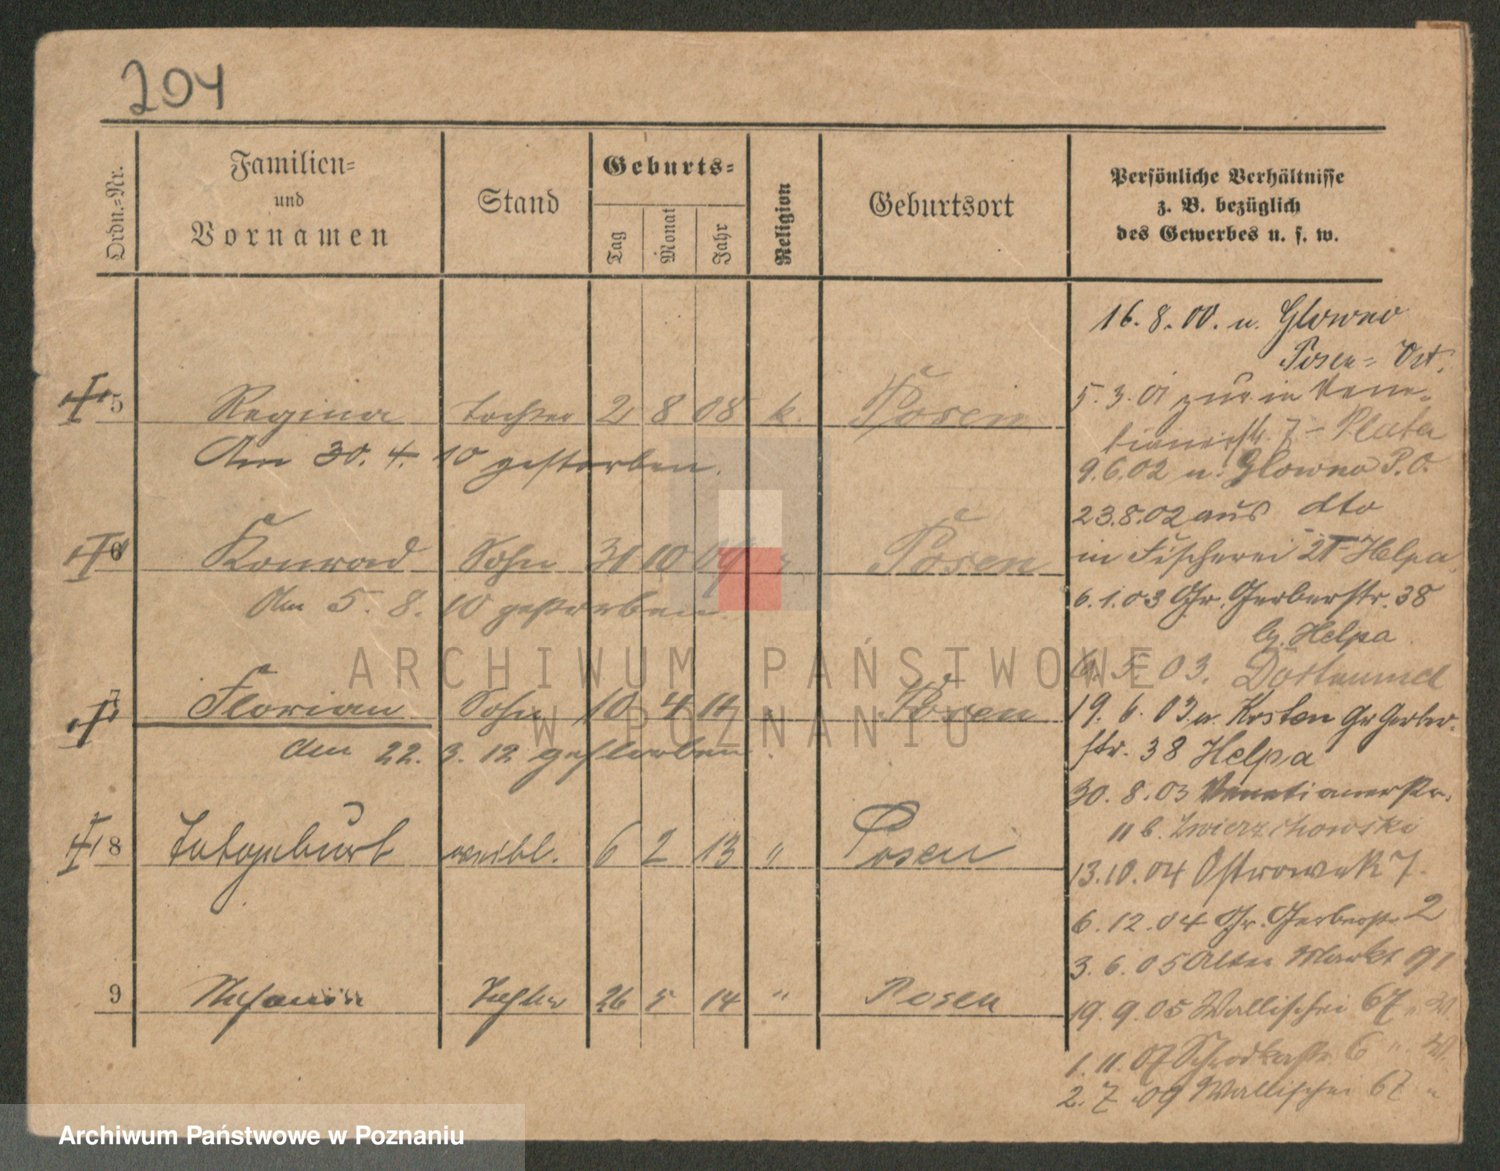 204
Ordn.-Nr.
Familien-
und
Vornamen
Stand
Geburts-
Tag
Monat
Jahr
Religion
Geburtsort
Persönliche Verhältnisse
z. B. bezüglich
des Gewerbes u. s. w.
5 Regina Tochter 21 8 08 k. Posen
Am 30. 4. 10 gestorben.
6 Konrad Sohn 31 10 09 Posen
Am 5. 8. 10 gestorben
7 Florian Sohn 10 4 Posen
Am 22. 3. 12 gestorben.
8 Totgeburt weibl. 6 2 13 " Posen
9 Tochter 26 5 14 " Posen
16. 8. 00. n. Glowno
Posen-Ost.
5. 3. 01
9.6.02 n. Glowno P.O.
23.8.02 aus dto
in Fischerei 21 Helpa
6.1.03 Gr. Gerberstr. 38
b. Helpa
5. 03. Dortmund
19. 6. 03 a. Kosten Gr Gerber-
str. 38 Helpa
30. 8. 03 Venetianerstr.
11 b. Zwierzchowski
13.10.04 Ostrowek 7.
6. 12. 04 Gr. Gerberstr 2
3. 6. 05 Alter Markt 91
19. 9. 05 Wallischei 67
1. 11. 07 6
2. 7. 09 Wallischei 67 "
ARCHIWUM PAŃSTWOWE
W POZNANIU
Archiwum Państwowe w Poznaniu